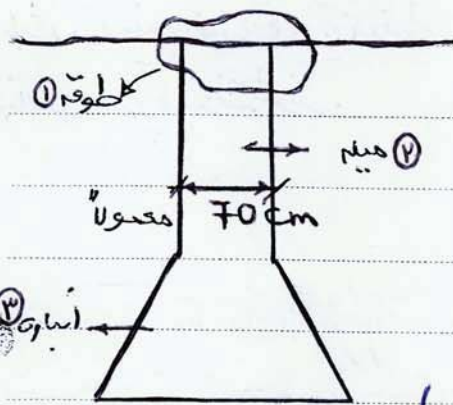 ① طوقه
② میله
معمولاً 70 cm
③ انباره